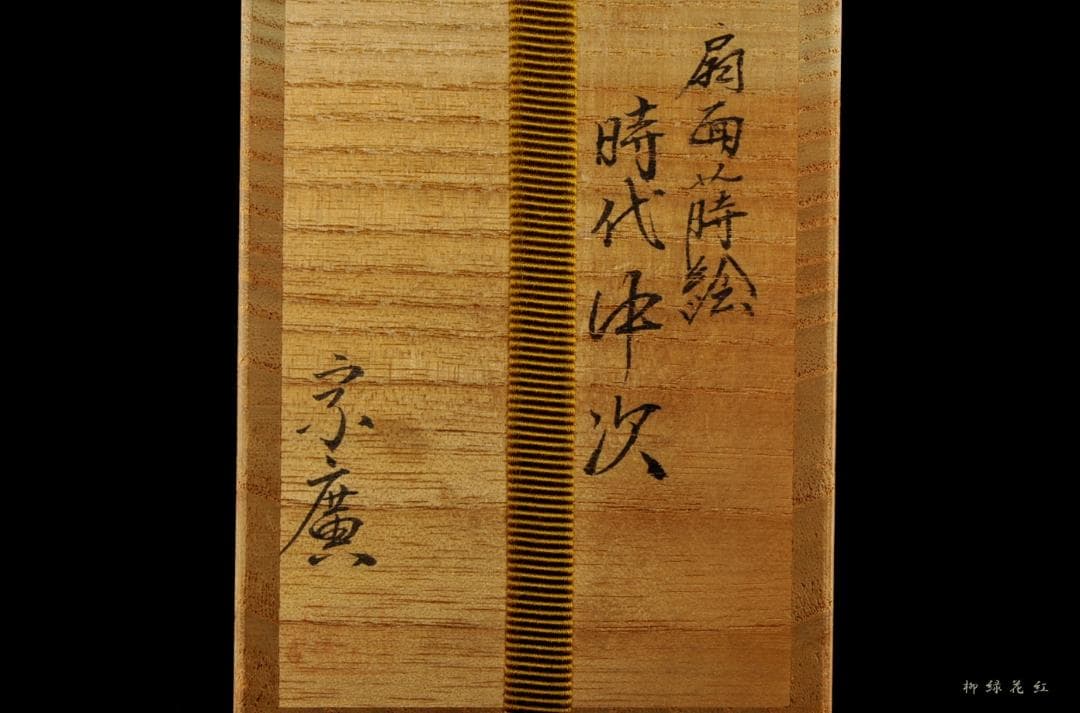 扇面蒔絵
時代中次
宗廣
柳緑花红